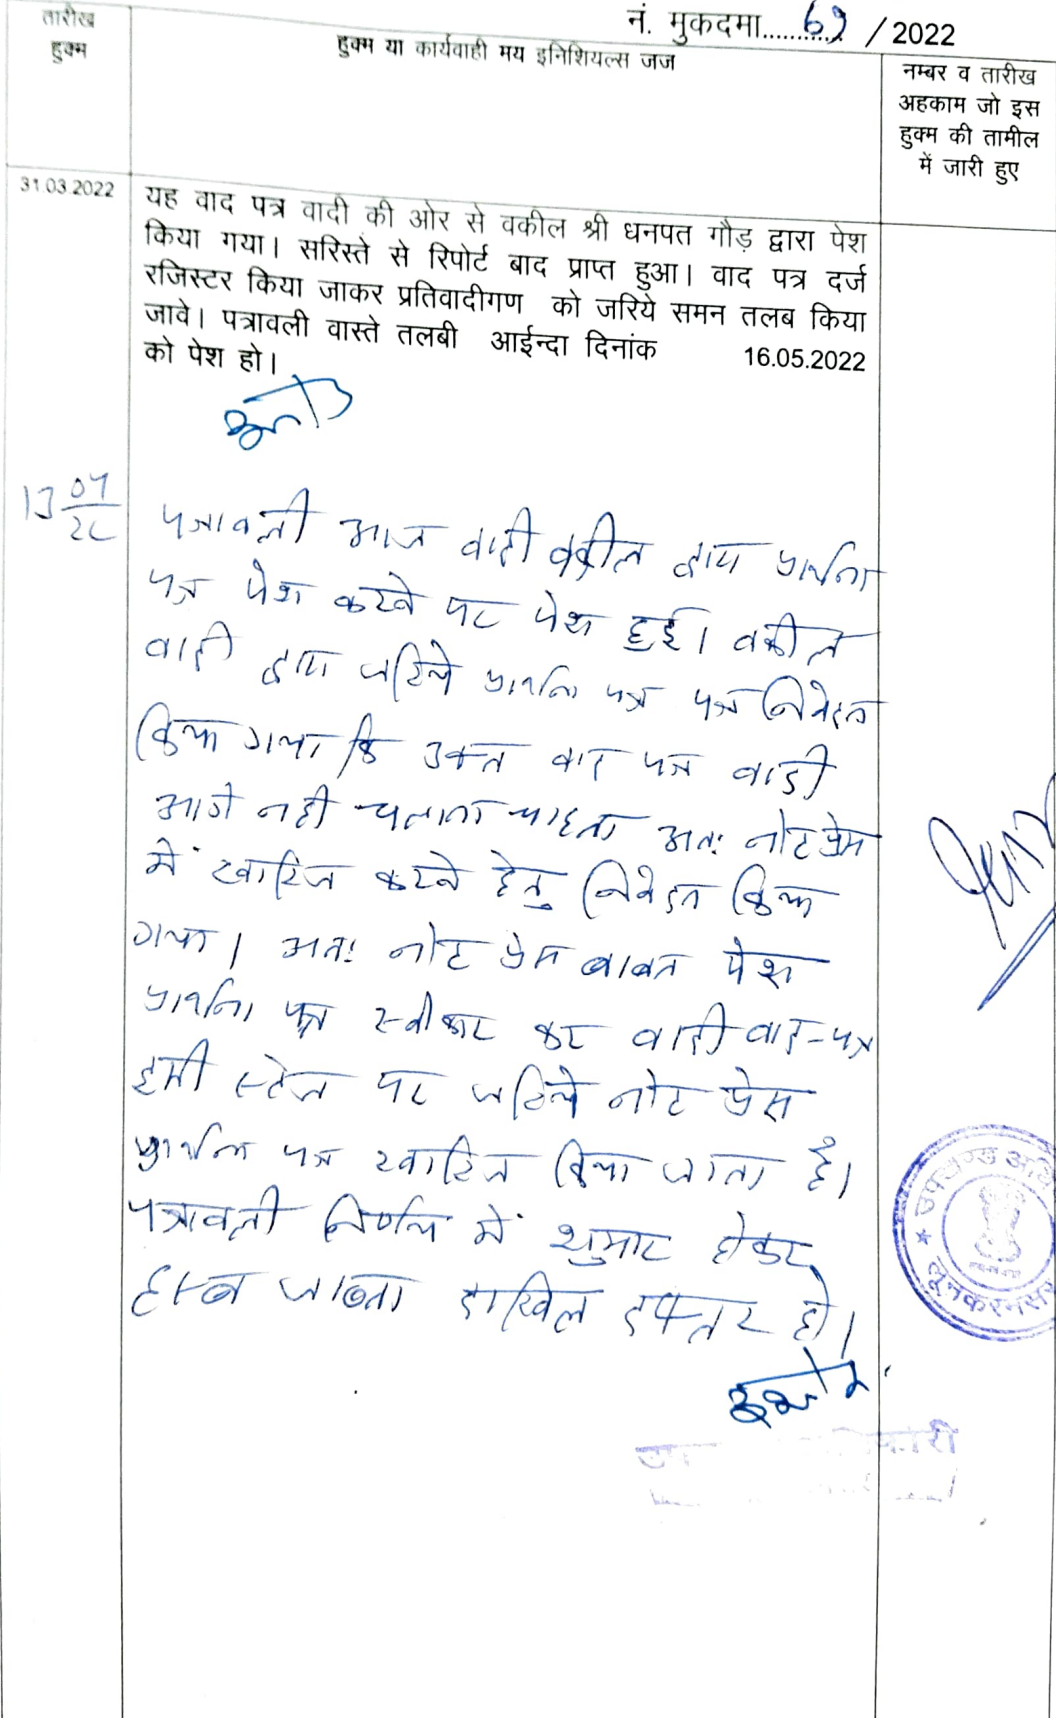 नं. मुकदमा............ 69 / 2022
तारीख
हुक्म
हुक्म या कार्यवाही मय इनिशियल्स जज
नम्बर व तारीख
अहकाम जो इस
हुक्म की तामील
में जारी हुए
31.03.2022
यह वाद पत्र वादी की ओर से वकील श्री धनपत गौड़ द्वारा पेश
किया गया। सरिस्ते से रिपोर्ट बाद प्राप्त हुआ। वाद पत्र दर्ज
रजिस्टर किया जाकर प्रतिवादीगण को जरिये समन तलब किया
जावे। पत्रावली वास्ते तलबी आईन्दा दिनांक 16.05.2022
को पेश हो।
पत्रावली आज वादी वकील द्वारा प्रार्थना
पत्र पेश करने पर पेश हुई। वकील
वादी द्वारा जरिये प्रार्थना पत्र पत्र निवेदन
किया गया कि उक्त वाद पत्र वादी
आगे नही चलाना चाहता अतः नोट प्रेस
में खारिज करने हेतु निवेदन किया
गया। अतः नोट प्रेस बाबत पेश
प्रार्थना पत्र स्वीकार कर वादी वाद-पत्र
इसी स्टेज पर जरिये नोट प्रेस
प्रार्थना पत्र खारिज किया जाता है।
पत्रावली निर्णय में शुमार होकर
हस्ब जाब्ता दाखिल दफ्तर हो।
उपखण्ड
लूनकरनसर